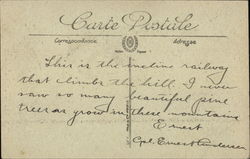 Carte Postale
Correspondance
Adresse
This is the incline railway
that climbs the hill. I never
saw so many beautiful pine
trees as grow in these mountains
Ernest
Cpl. Ernest Anderson